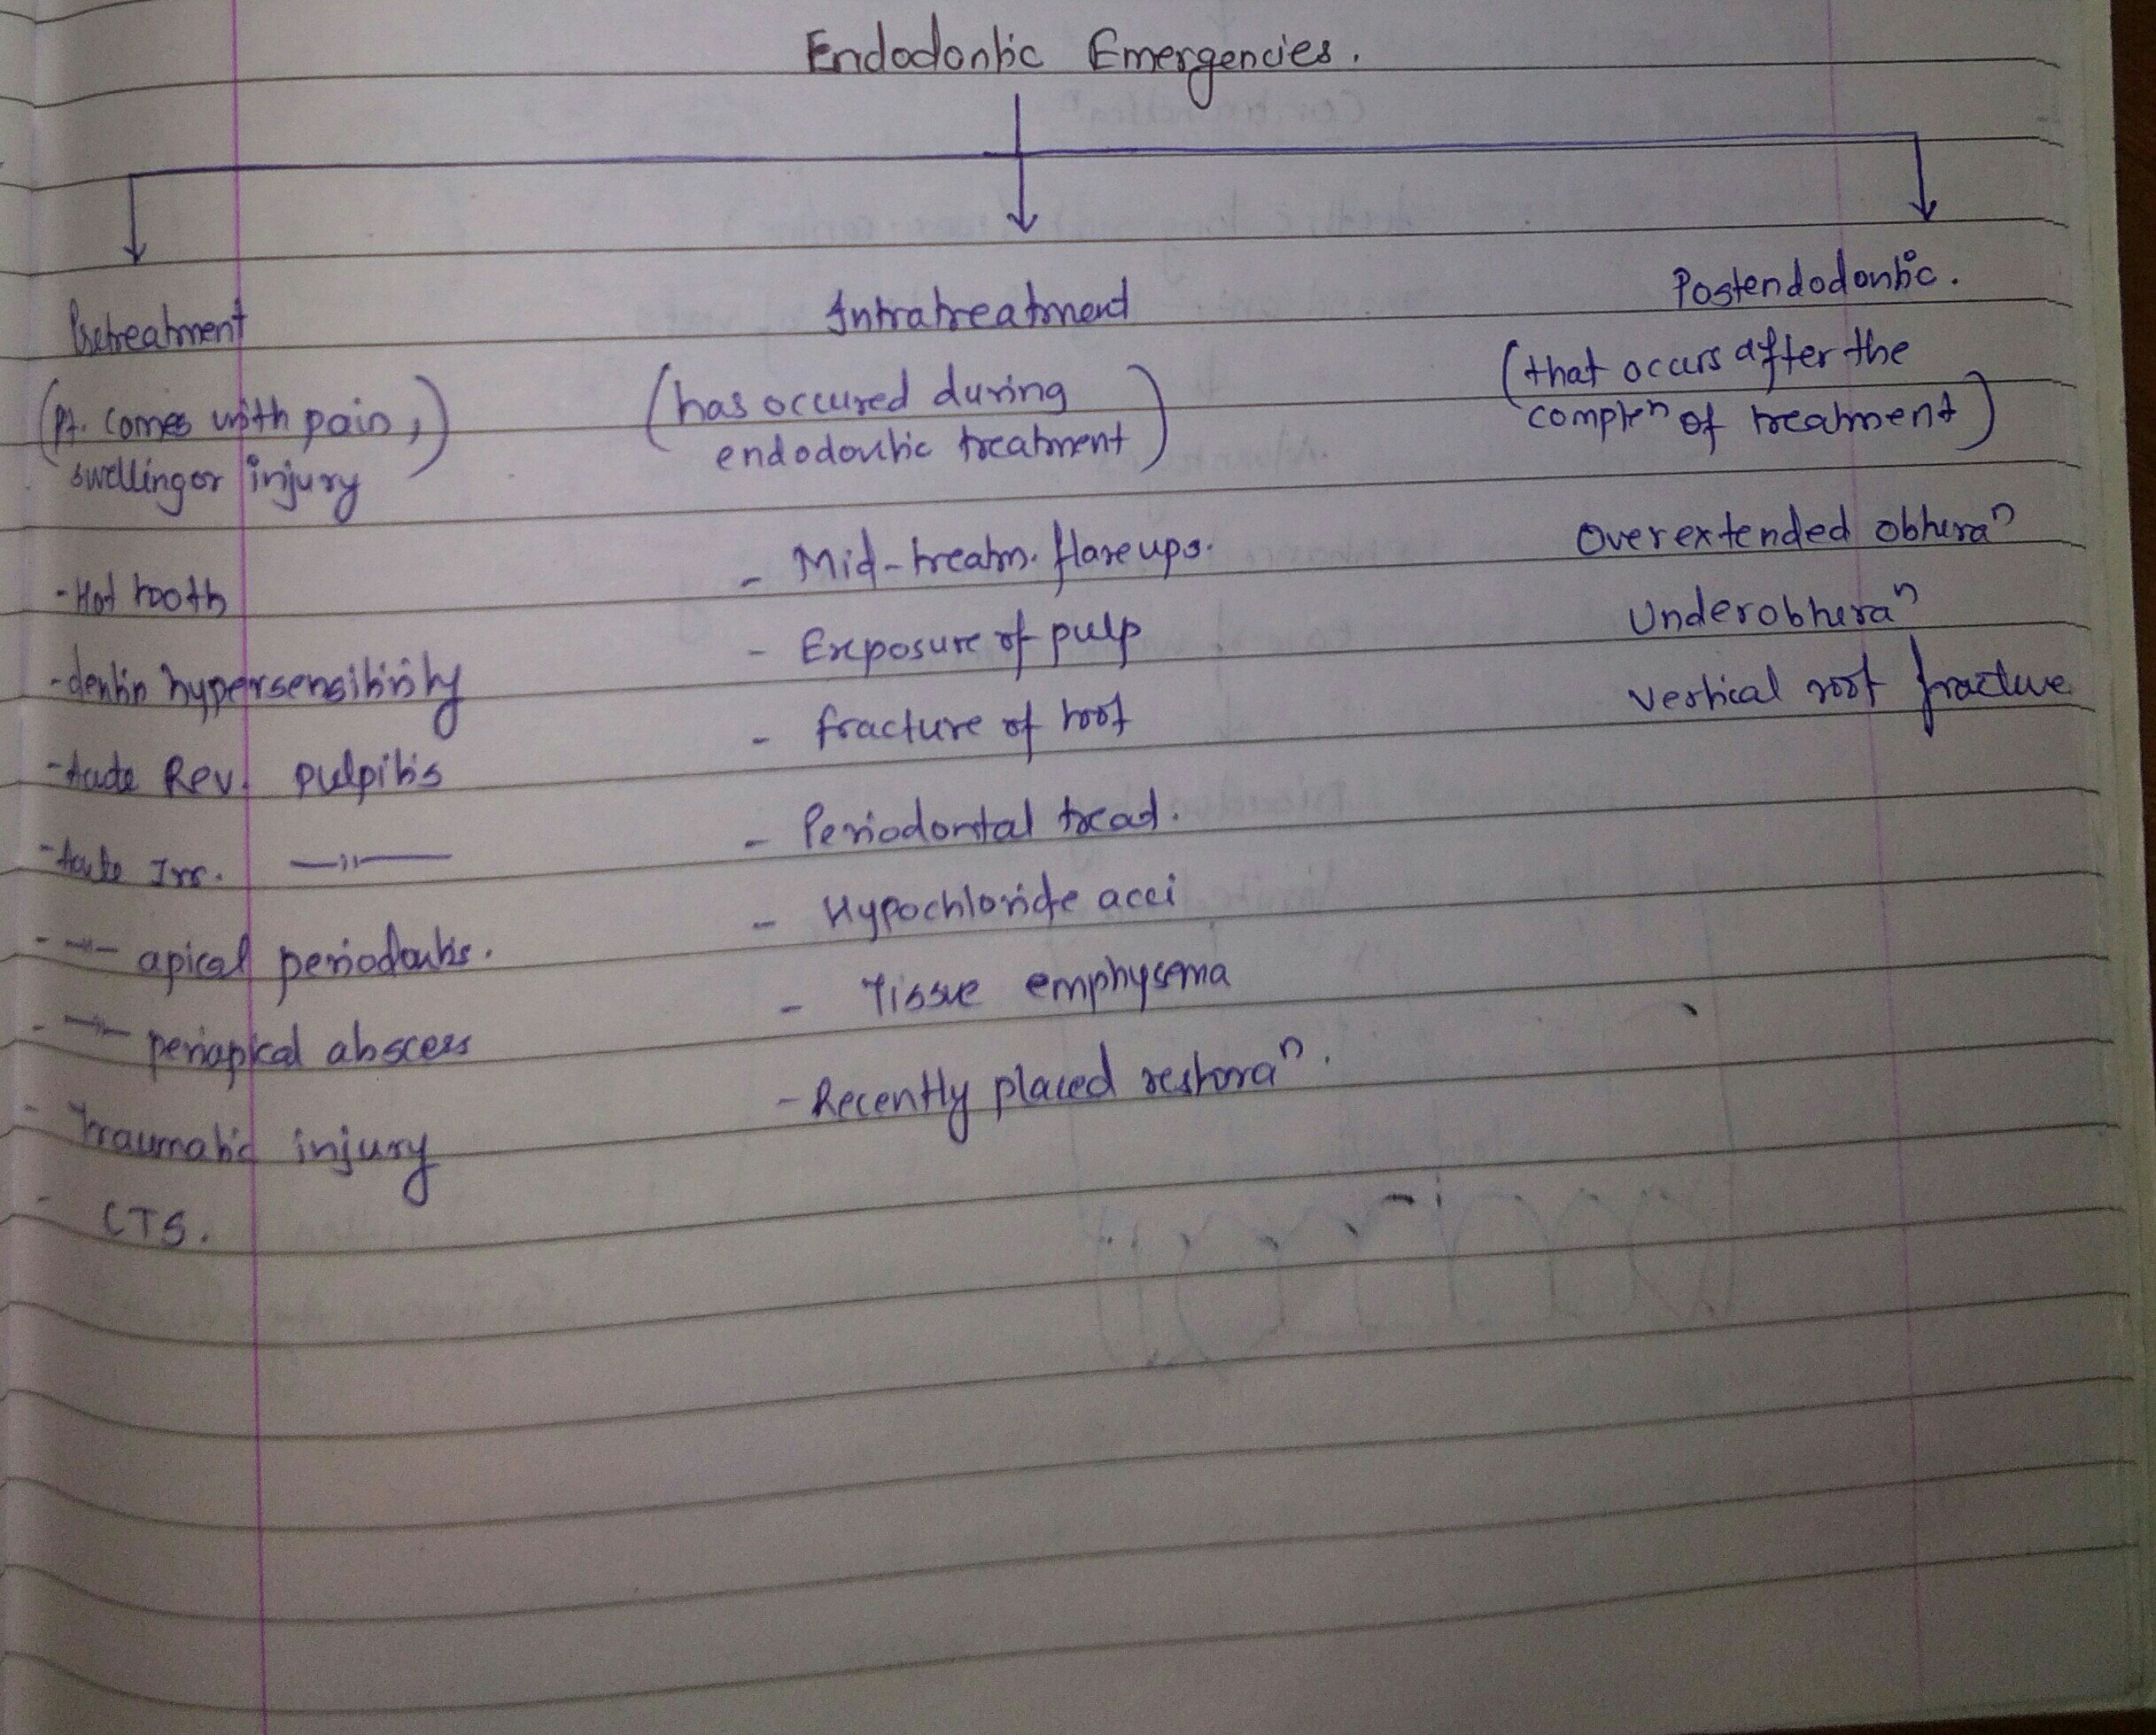 Endodontic Emergencies.
Pretreatment
(Pt. comes with pain,
swelling or injury)
- Hot tooth
- dentin hypersensitivity
- Acute Rev. pulpitis
- Acute Irr. —"—
- —"— apical periodontitis.
- —"— periapical abscess
- Traumatic injury
- CTS.
Intratreatment
(has occured during
endodontic treatment)
- Mid-treatm. flareups.
- Exposure of pulp
- fracture of root
- Periodontal treat.
- Hypochloride acci
- Tissue emphysema
- Recently placed restoraⁿ.
Postendodontic.
(that occurs after the
compleⁿ of treatment)
Overextended obturaⁿ
Underobturaⁿ
Vertical root fracture